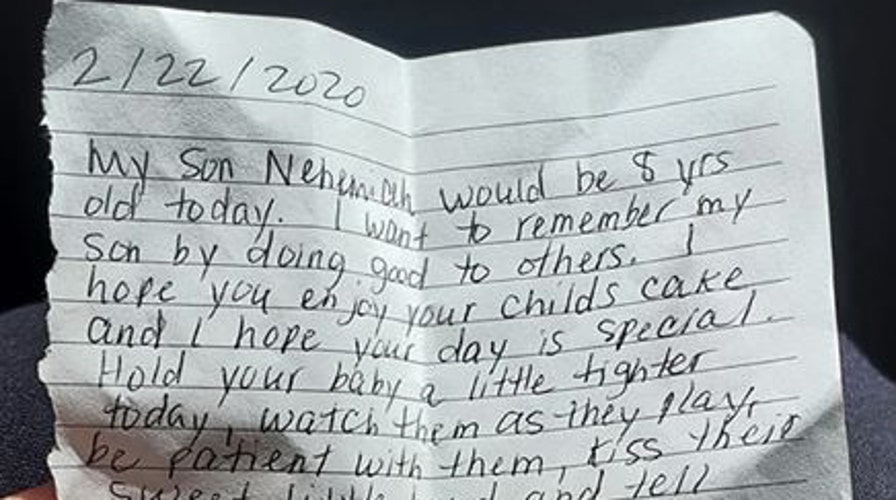 2/22/2020
My Son Nehemiah would be 8 yrs
old today. I want to remember my
Son by doing good to others. I
hope you enjoy your childs cake
and I hope your day is special.
Hold your baby a little tighter
today, watch them as they play,
be patient with them, kiss their
sweet little and tell